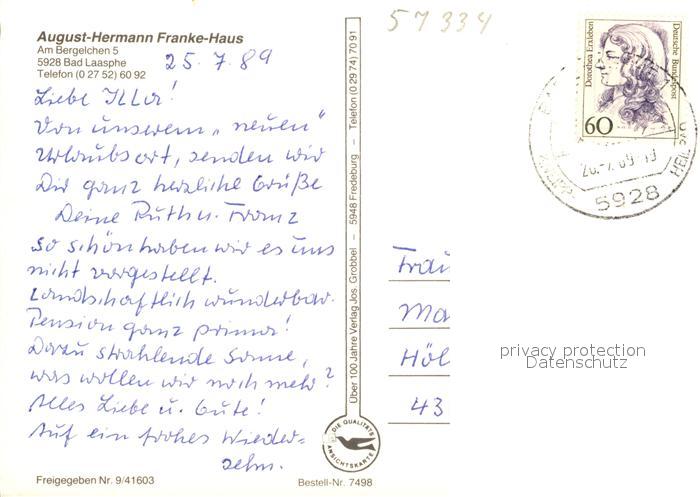 August-Hermann Franke-Haus
Am Bergelchen 5
5928 Bad Laasphe
Telefon (0 27 52) 60 92
25. 7. 89
Liebe Illa!
Von unserem „neuen"
Urlaubsort, senden wir
Dir ganz herzliche Grüße
Deine Ruth u. Franz
So schön haben wir es uns
nicht vorgestellt.
Landschaftlich wunderbar.
Pension ganz prima!
Dazu strahlende Sonne,
was wollen wir noch mehr?
Alles Liebe u. Gute!
Auf ein frohes Wieder=
sehn.
Freigegeben Nr. 9/41603
Bestell-Nr. 7498
Über 100 Jahre Verlag Jos. Grobbel – 5948 Fredeburg – Telefon (0 29 74) 70 91
DIE QUALITÄTS
ANSICHTSKARTE
57334
Dorothea Erxleben
Deutsche Bundespost
60
5928
Frau
Ma
Höl
43
privacy protection
Datenschutz